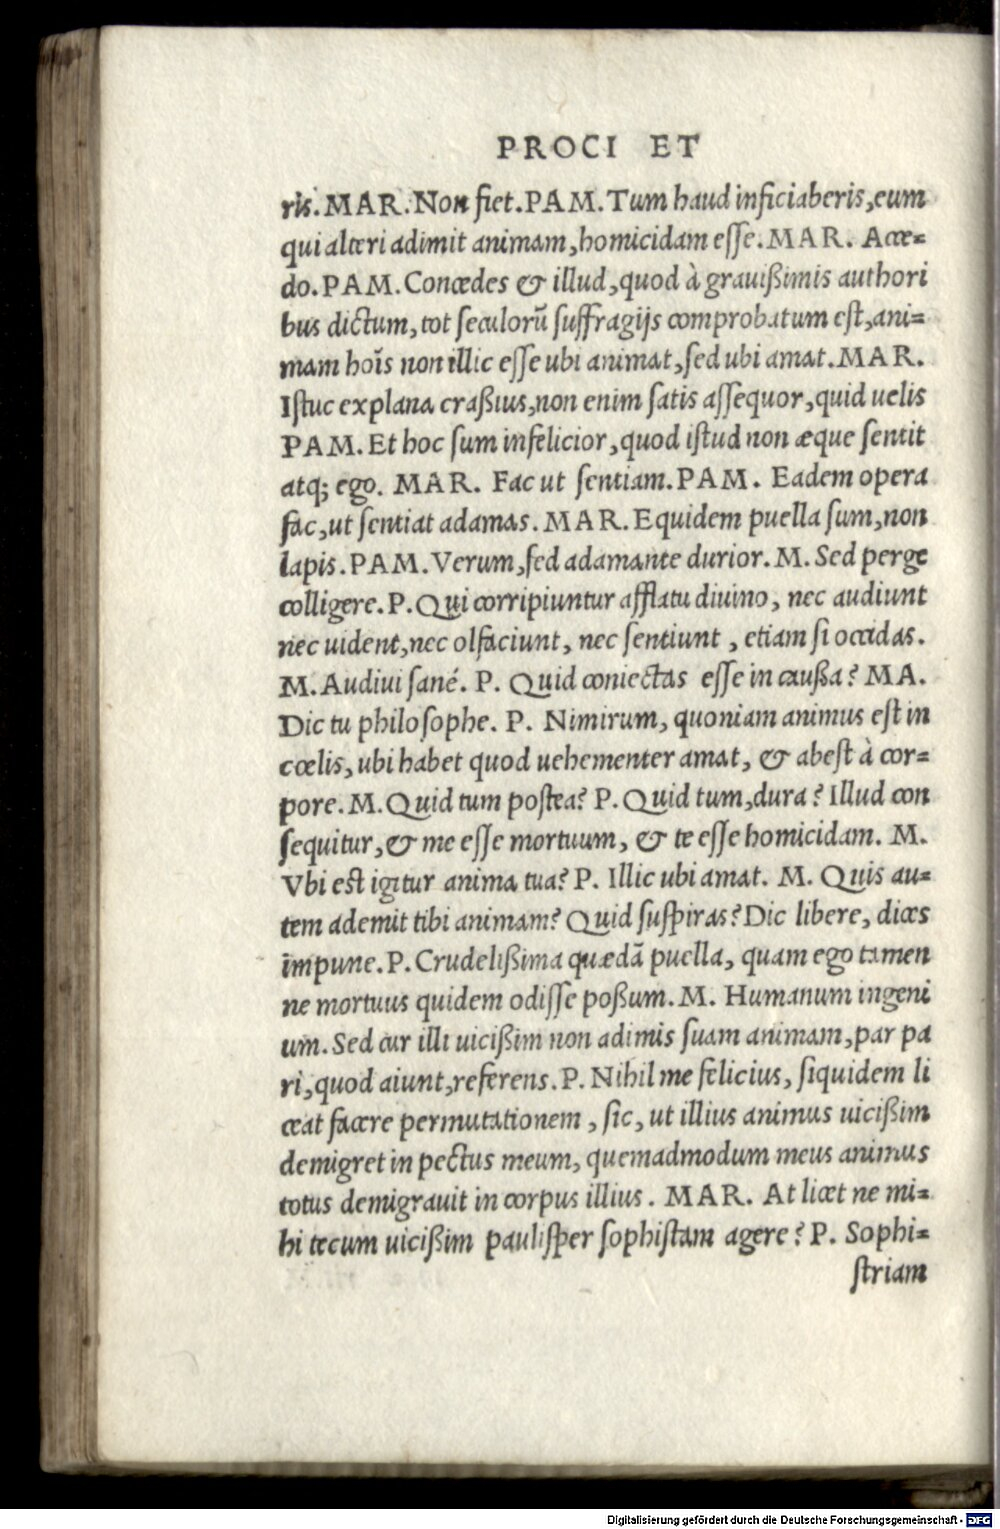 PROCI ET
ris. MAR. Non fiet. PAM. Tum haud inficiaberis, eum
qui alteri adimit animam, homicidam esse. MAR. Acce=
do. PAM. Concedes & illud, quod à grauißimis authori
bus dictum, tot seculorũ suffragijs comprobatum est, ani=
mam hoĩs non illic esse ubi animat, sed ubi amat. MAR.
Istuc explana craßius, non enim satis assequor, quid uelis
PAM. Et hoc sum infelicior, quod istud non æque sentit
atq; ego. MAR. Fac ut sentiam. PAM. Eadem opera
fac, ut sentiat adamas. MAR. Equidem puella sum, non
lapis. PAM. Verum, sed adamante durior. M. Sed perge
colligere. P. Qui corripiuntur afflatu diuino, nec audiunt
nec uident, nec olfaciunt, nec sentiunt, etiam si occidas.
M. Audiui sané. P. Quid coniectas esse in caußa? MA.
Dic tu philosophe. P. Nimirum, quoniam animus est in
cœlis, ubi habet quod uehementer amat, & abest à cor=
pore. M. Quid tum postea? P. Quid tum, dura? Illud con
sequitur, & me esse mortuum, & te esse homicidam. M.
Vbi est igitur anima tua? P. Illic ubi amat. M. Quis au=
tem ademit tibi animam? Quid suspiras? Dic libere, dices
impune. P. Crudelißima quædã puella, quam ego tamen
ne mortuus quidem odisse poßum. M. Humanum ingeni
um. Sed cur illi uicißim non adimis suam animam, par pa
ri, quod aiunt, referens. P. Nihil me felicius, siquidem li
ceat facere permutationem, sic, ut illius animus uicißim
demigret in pectus meum, quemadmodum meus animus
totus demigrauit in corpus illius. MAR. At licet ne mi=
hi tecum uicißim paulisper sophistam agere? P. Sophi=
striam
Digitalisierung gefördert durch die Deutsche Forschungsgemeinschaft - DFG